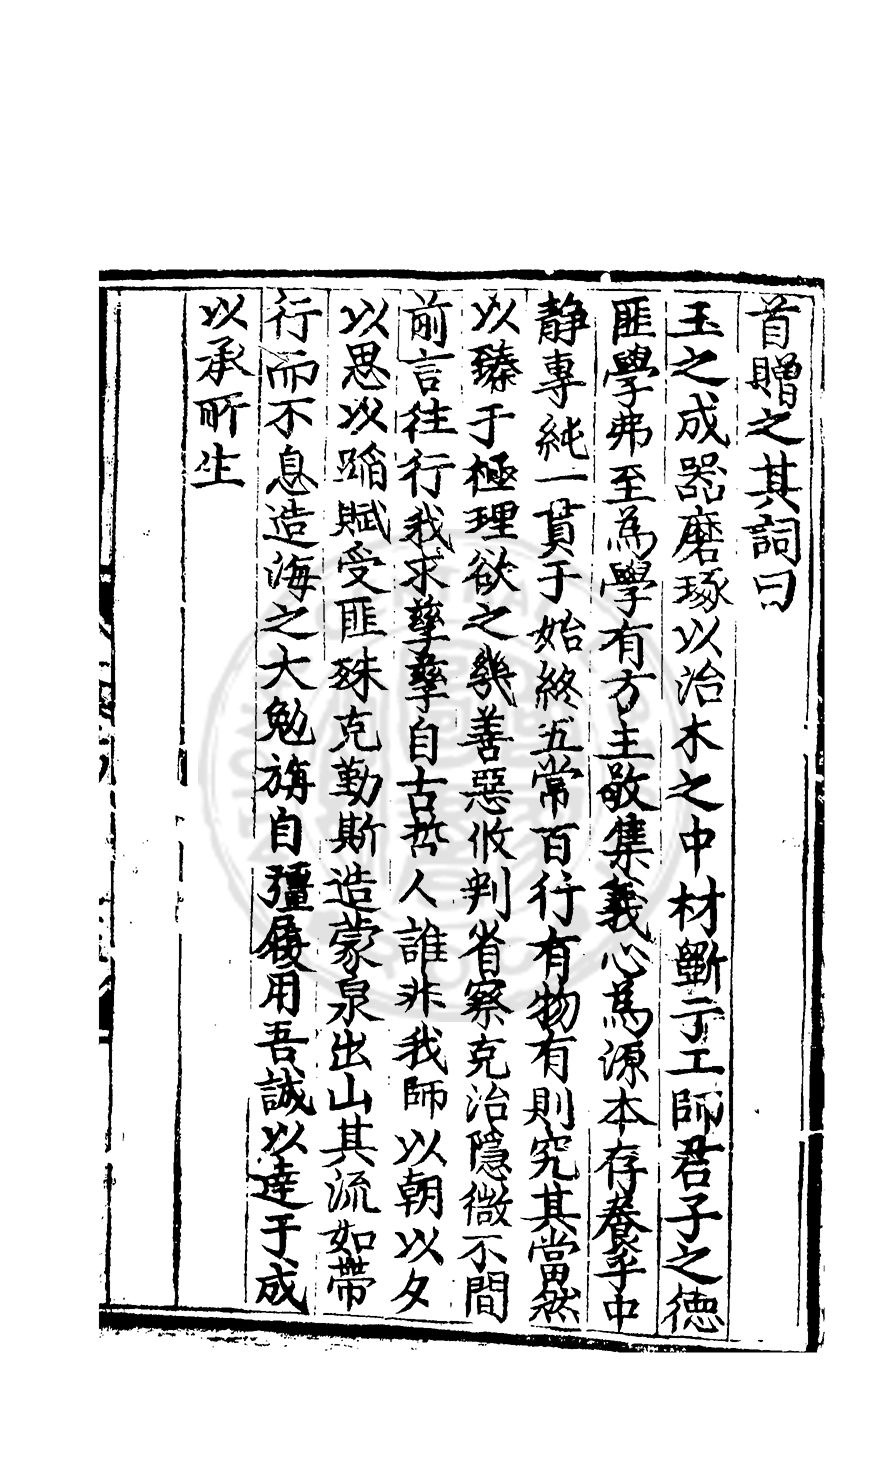 首贈之其詞曰
玉之成器磨琢以治木之中材斵于工師君子之徳
匪學弗至為學有方主敬集義心為源本存養乎中
静專純一貫于始終五常百行有物有則究其當然
以臻于極理欲之幾善惡攸判省察克治隱微不間
前言往行我求孳孳自古哲人誰非我師以朝以夕
以思以蹈賦受匪殊克勤斯造蒙泉出山其流如帶
行而不息造海之大勉旃自彊履用吾誠以達于成
以承所生